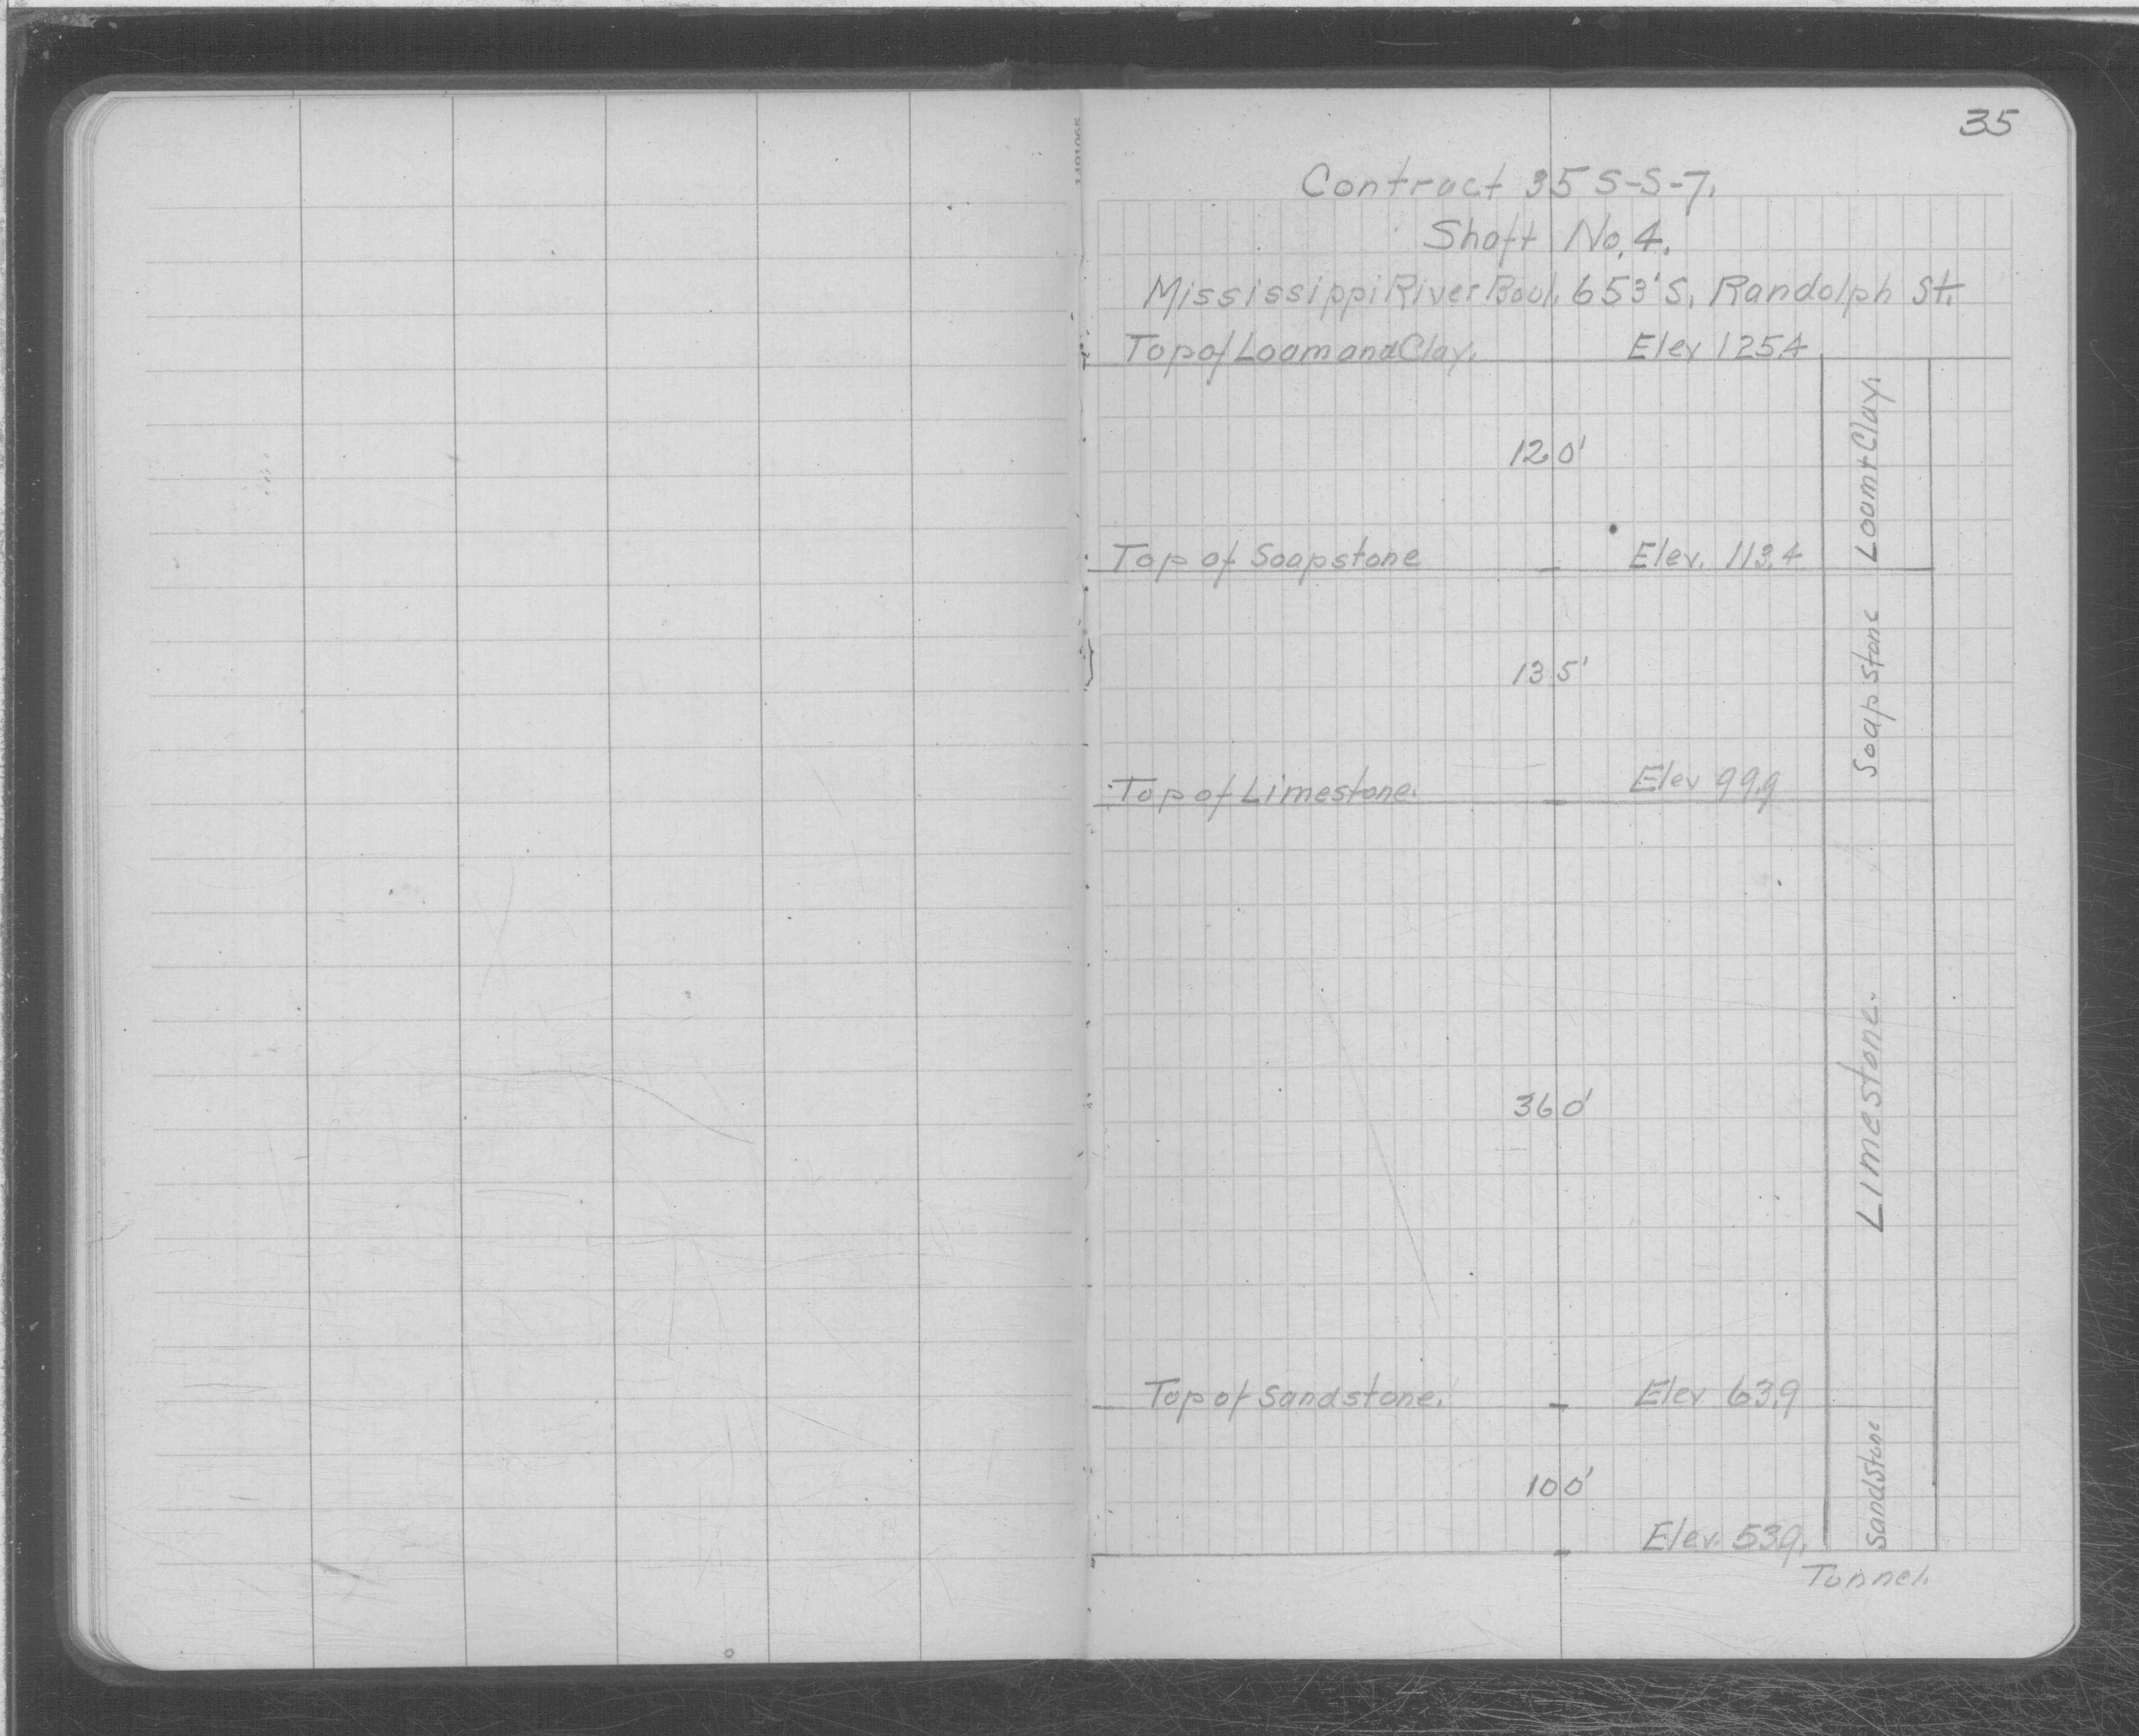 35
Contract 35 S-S-7.
Shaft No. 4.
Mississippi River Boul. 653' S. Randolph St.
Top of Loam and Clay. Elev 125.4
Loam + Clay.
12.0'
Top of Soapstone Elev. 113.4
Soapstone
13.5'
Top of Limestone. Elev 99.9
Limestone.
36.0'
Top of Sandstone. Elev 63.9
Sandstone
10.0'
Elev. 53.9.
Tunnel.